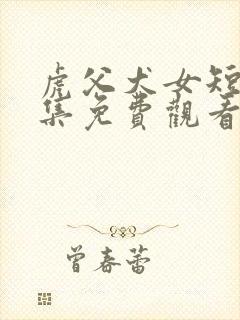 虎父犬女短
集免費觀看
曾春蕾